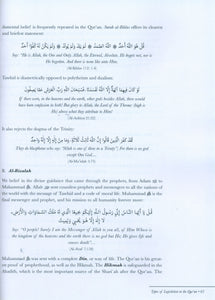 damental belief is frequently repeated in the Qur'an. Surah al-Ikhlas offers its clearest
and briefest statement:
قُلْ هُوَ اللَّهُ أَحَدٌ اللَّهُ الصَّمَدُ لَمْ يَلِدْ وَلَمْ يُولَدْ وَلَمْ يَكُن لَّهُ كُفُوًا أَحَدٌ
Say: "He is Allah, the One and Only; Allah, the Eternal, Absolute. He begets not, nor is
He begotten. And there is none like unto Him.
(Al-Ikhlas 112: 1-4)
Tawhid is diametrically opposed to polytheism and dualism:
لَوْ كَانَ فِيهِمَا آلِهَةٌ إِلَّا اللَّهُ لَفَسَدَتَا فَسُبْحَانَ اللَّهِ رَبِّ الْعَرْشِ عَمَّا يَصِفُونَ
If there were, in the heavens and the earth, other gods besides Allah, there would
have been confusion in both! But glory to Allah, the Lord of the Throne: (high is
He) above what they attribute to Him!
(Al-Anbiyaa 21:22)
It also rejects the dogma of the Trinity:
لَقَدْ كَفَرَ الَّذِينَ قَالُوا إِنَّ اللَّهَ ثَالِثُ ثَلَاثَةٍ وَمَا مِنْ إِلَٰهٍ إِلَّا إِلَٰهٌ وَاحِدٌ
They do blaspheme who say: "Allah is one of three in a Trinity": For there is no god
except One God...
(Al-Ma'idah 5:73)
Al-Risalah
We belief in the divine guidance that came through the prophets, from Adam to
Muhammad. Allah sent countless prophets and messengers to all the nations of
the world with the message of Tawhid and a code of moral life. Muhammad is the
final messenger and prophet, and his mission to all humanity forever more:
قُلْ يَا أَيُّهَا النَّاسُ إِنِّي رَسُولُ اللَّهِ إِلَيْكُمْ جَمِيعًا الَّذِي لَهُ مُلْكُ السَّمَاوَاتِ وَالْأَرْضِ
لَا إِلَٰهَ إِلَّا هُوَ يُحْيِي وَيُمِيتُ
Say: "O people! Surely I am the Messenger of Allah to you all, of Him Whose is
the kingdom of the heavens and the earth there is no god but He; He gives life and
causes death...
(Al-A'raf 7:158)
Muhammad was sent with a complete Din, or way of life. The Qur'an is his great-
est proof of prophethood, as well as the Hikmah. The Hikmah is safeguarded in the
Ahadith, which is the most important source of the Shari'ah after the Qur'an. The
Types of Legislation in the Qur'an